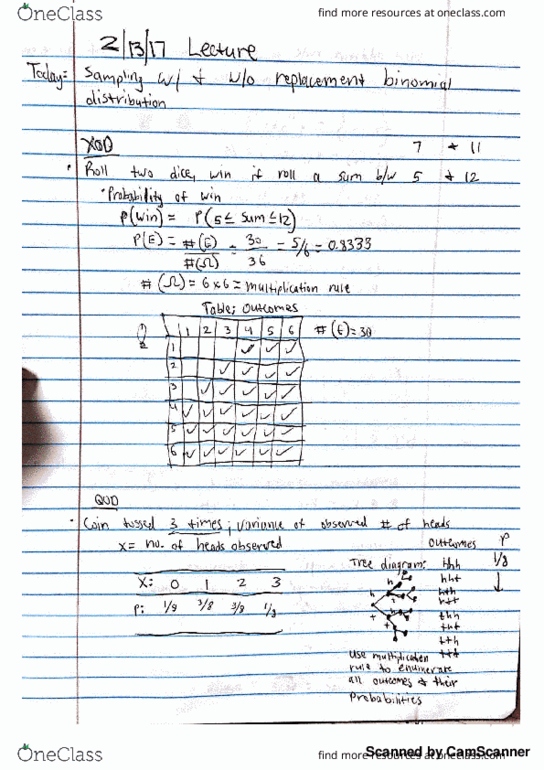 OneClass
find more resources at oneclass.com
2/13/17 Lecture
Today: Sampling w/ & w/o replacement binomial
distribution
7 & 11
Roll two dice, win if roll a sum b/w 5 & 12
Probability of win
P(win) = P(5 ≤ sum ≤ 12)
P(E) = #(E)/#(Ω) = 30/36 = 5/6 = 0.8333
#(Ω) = 6×6 = multiplication rule
Table: Outcomes
1 2 3 4 5 6 #(E)=30
1 ✓ ✓ ✓
2 ✓ ✓ ✓ ✓
3 ✓ ✓ ✓ ✓ ✓
4 ✓ ✓ ✓ ✓ ✓ ✓
5 ✓ ✓ ✓ ✓ ✓ ✓
6 ✓ ✓ ✓ ✓ ✓ ✓
QOD
Coin tossed 3 times; variance of observed # of heads
x = no. of heads observed
X: 0 1 2 3
P: 1/8 3/8 3/8 1/8
outcomes P
Tree diagram: hhh 1/8
hht
hth
htt
thh
tht
tth
ttt
h
t
Use multiplication
rule to enumerate
all outcomes & their
Probabilities
OneClass
find more resources at oneclass.com
Scanned by CamScanner